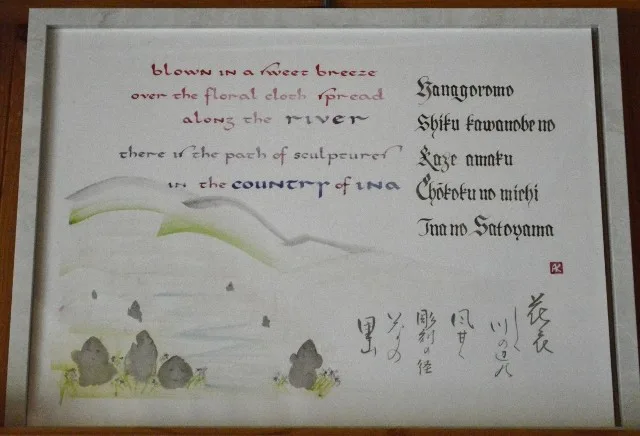 blown in a sweet breeze
over the floral cloth spread
along the river
there is the path of sculptures
in the country of INA
Hanagoromo
Shiku kawanobe no
Kaze amaku
Chōkoku no michi
Ina no Satoyama
AK
花衣
しく
川の辺の
風甘く
彫刻の径
いなの
里山